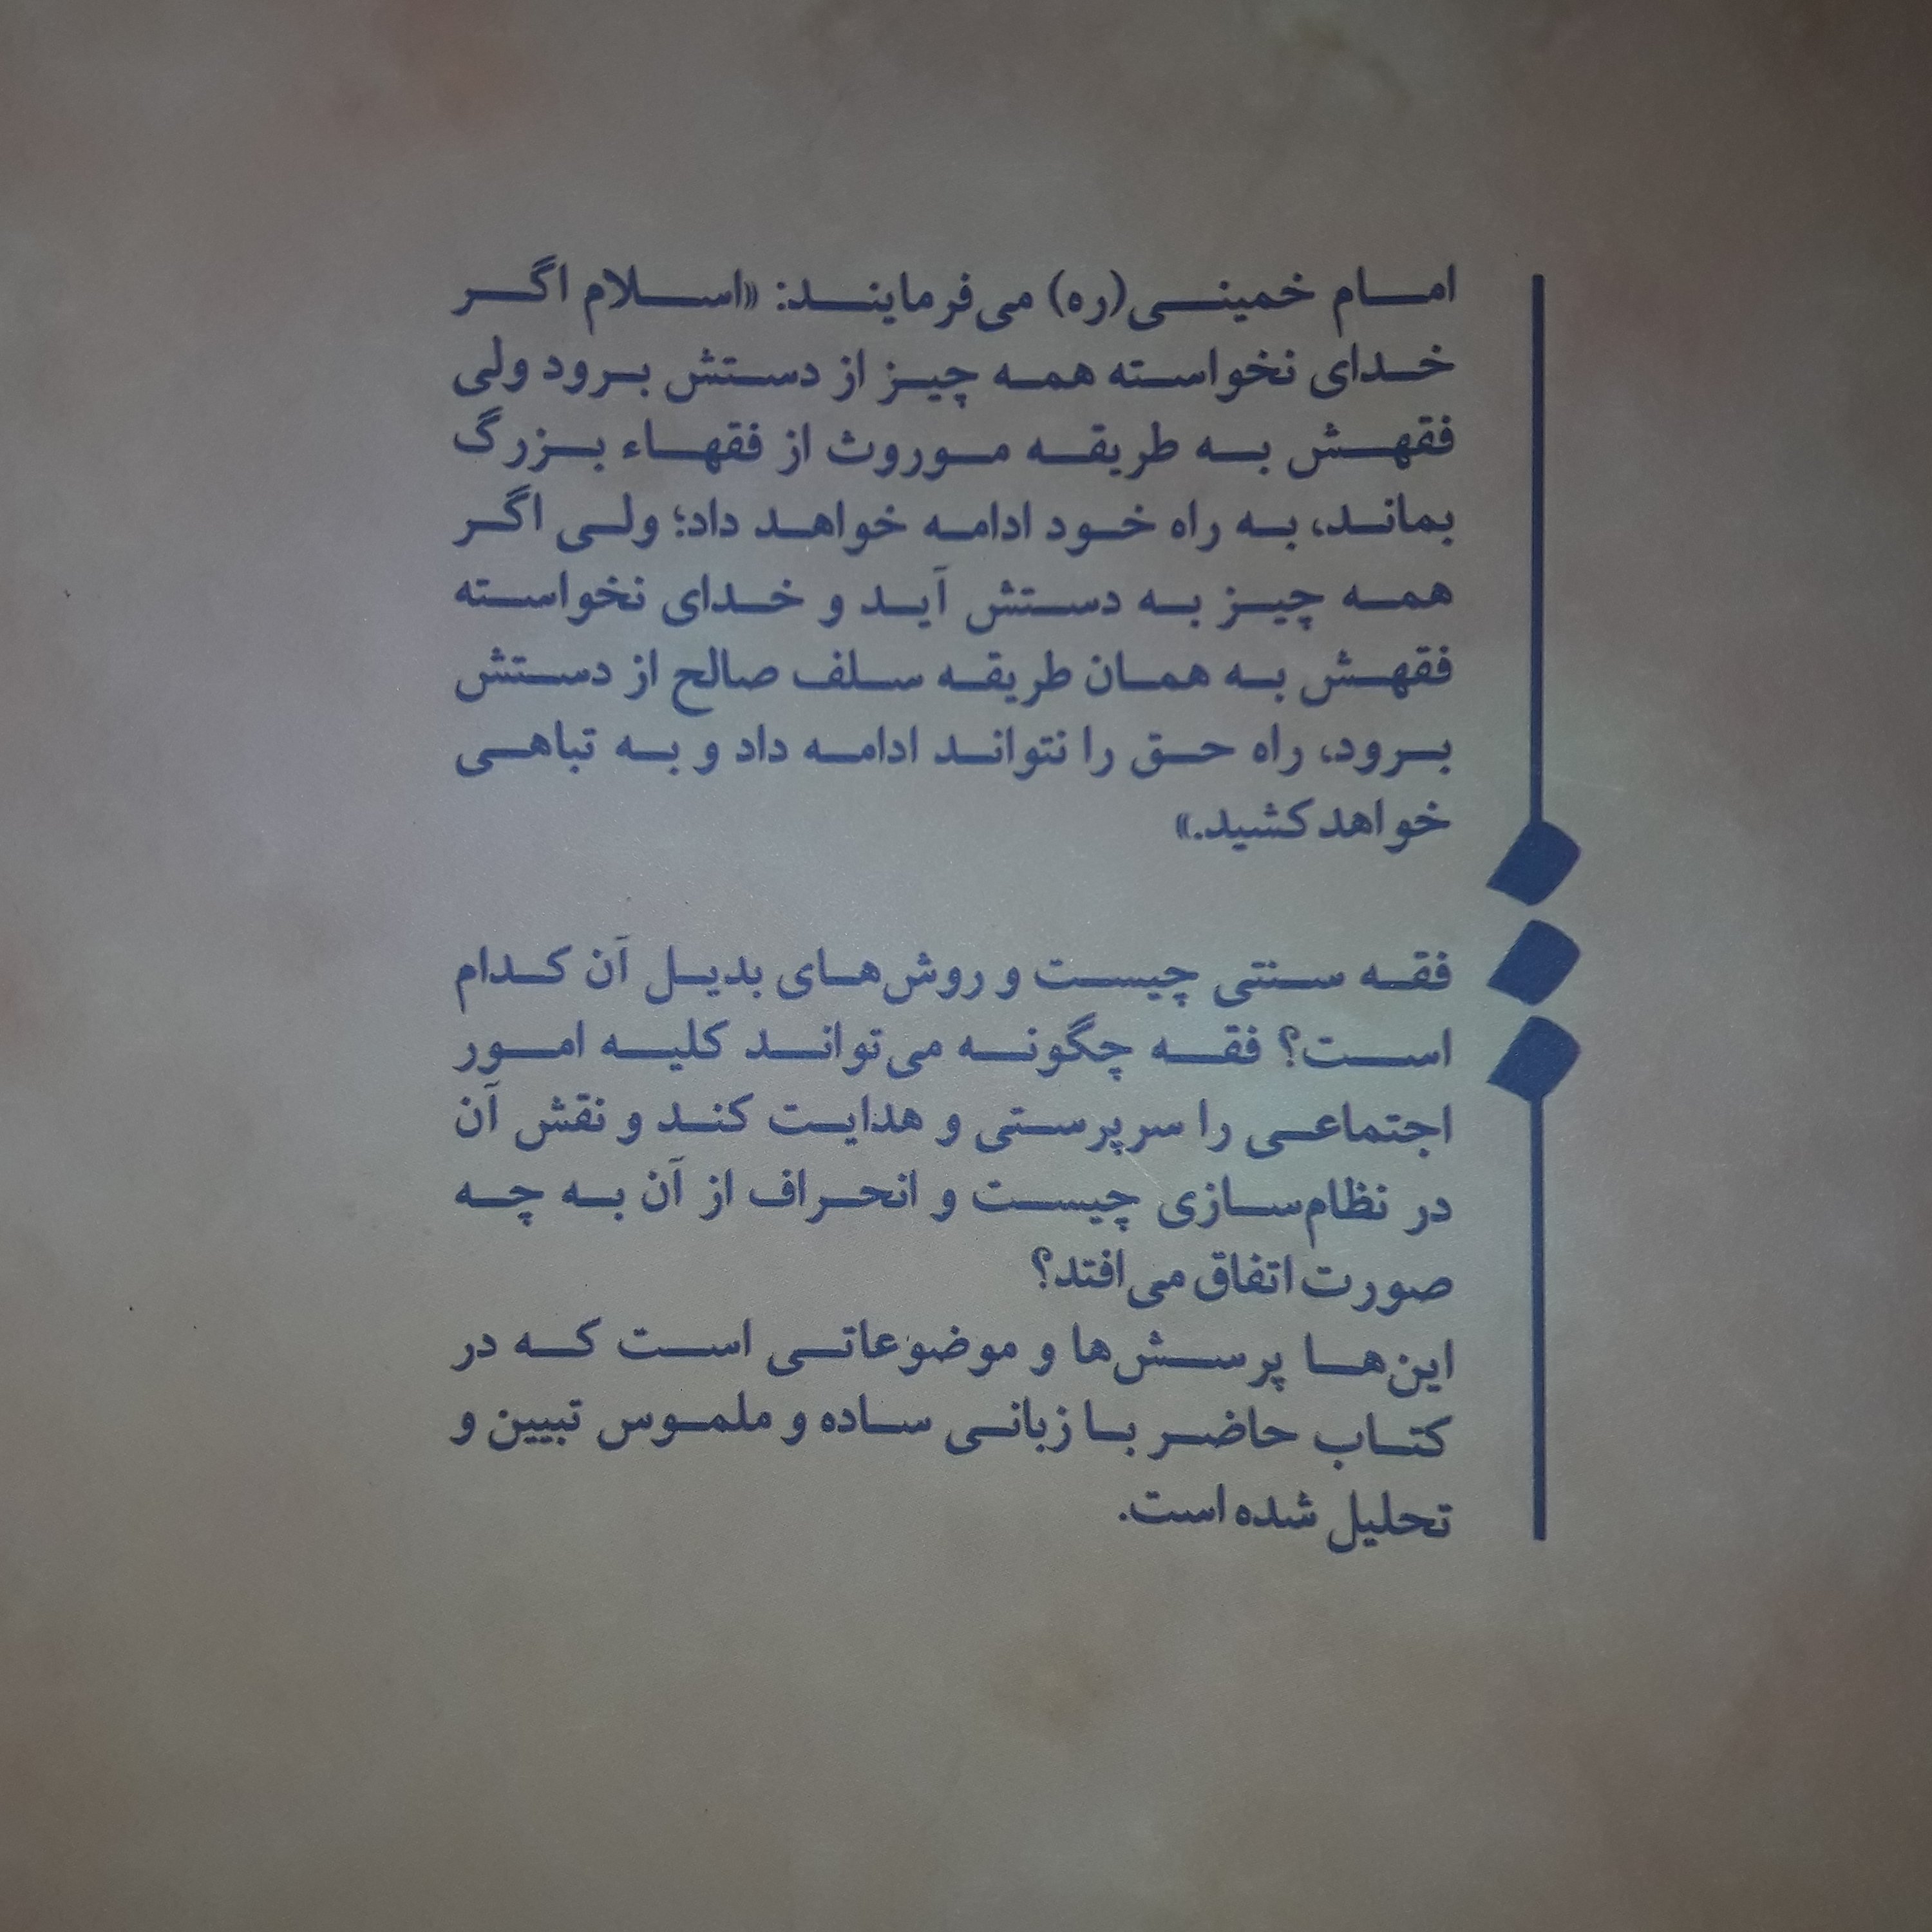 امام خمینی(ره) می‌فرمایند: «اسلام اگر
خدای نخواسته همه چیز از دستش برود ولی
فقهش به طریقه موروث از فقهاء بزرگ
بماند، به راه خود ادامه خواهد داد؛ ولی اگر
همه چیز به دستش آید و خدای نخواسته
فقهش به همان طریقه سلف صالح از دستش
برود، راه حق را نتواند ادامه داد و به تباهی
خواهد کشید.»
فقه سنتی چیست و روش‌های بدیل آن کدام
است؟ فقه چگونه می‌تواند کلیه امور
اجتماعی را سرپرستی و هدایت کند و نقش آن
در نظام‌سازی چیست و انحراف از آن به چه
صورت اتفاق می‌افتد؟
این‌ها پرسش‌ها و موضوعاتی است که در
کتاب حاضر با زبانی ساده و ملموس تبیین و
تحلیل شده است.